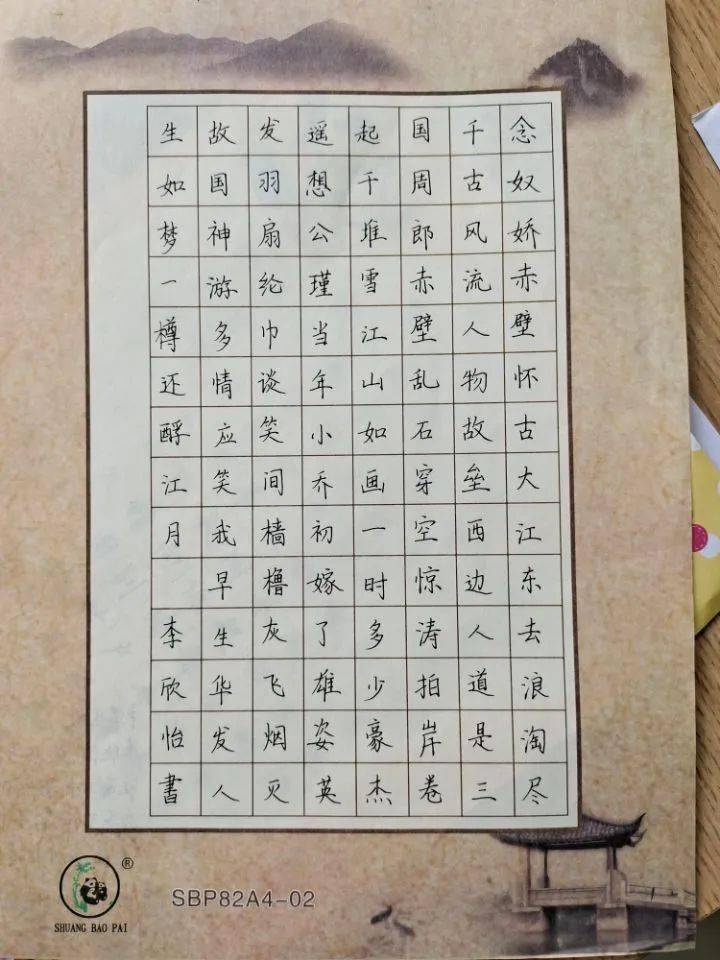 念奴娇赤壁怀古大江东去浪淘尽
千古风流人物故垒西边人道是三
国周郎赤壁乱石穿空惊涛拍岸卷
起千堆雪江山如画一时多少豪杰
遥想公瑾当年小乔初嫁了雄姿英
发羽扇纶巾谈笑间樯橹灰飞烟灭
故国神游多情应笑我早生华发人
生如梦一樽还酹江月 李欣怡書
®
SHUANG BAO PAI
SBP82A4-02